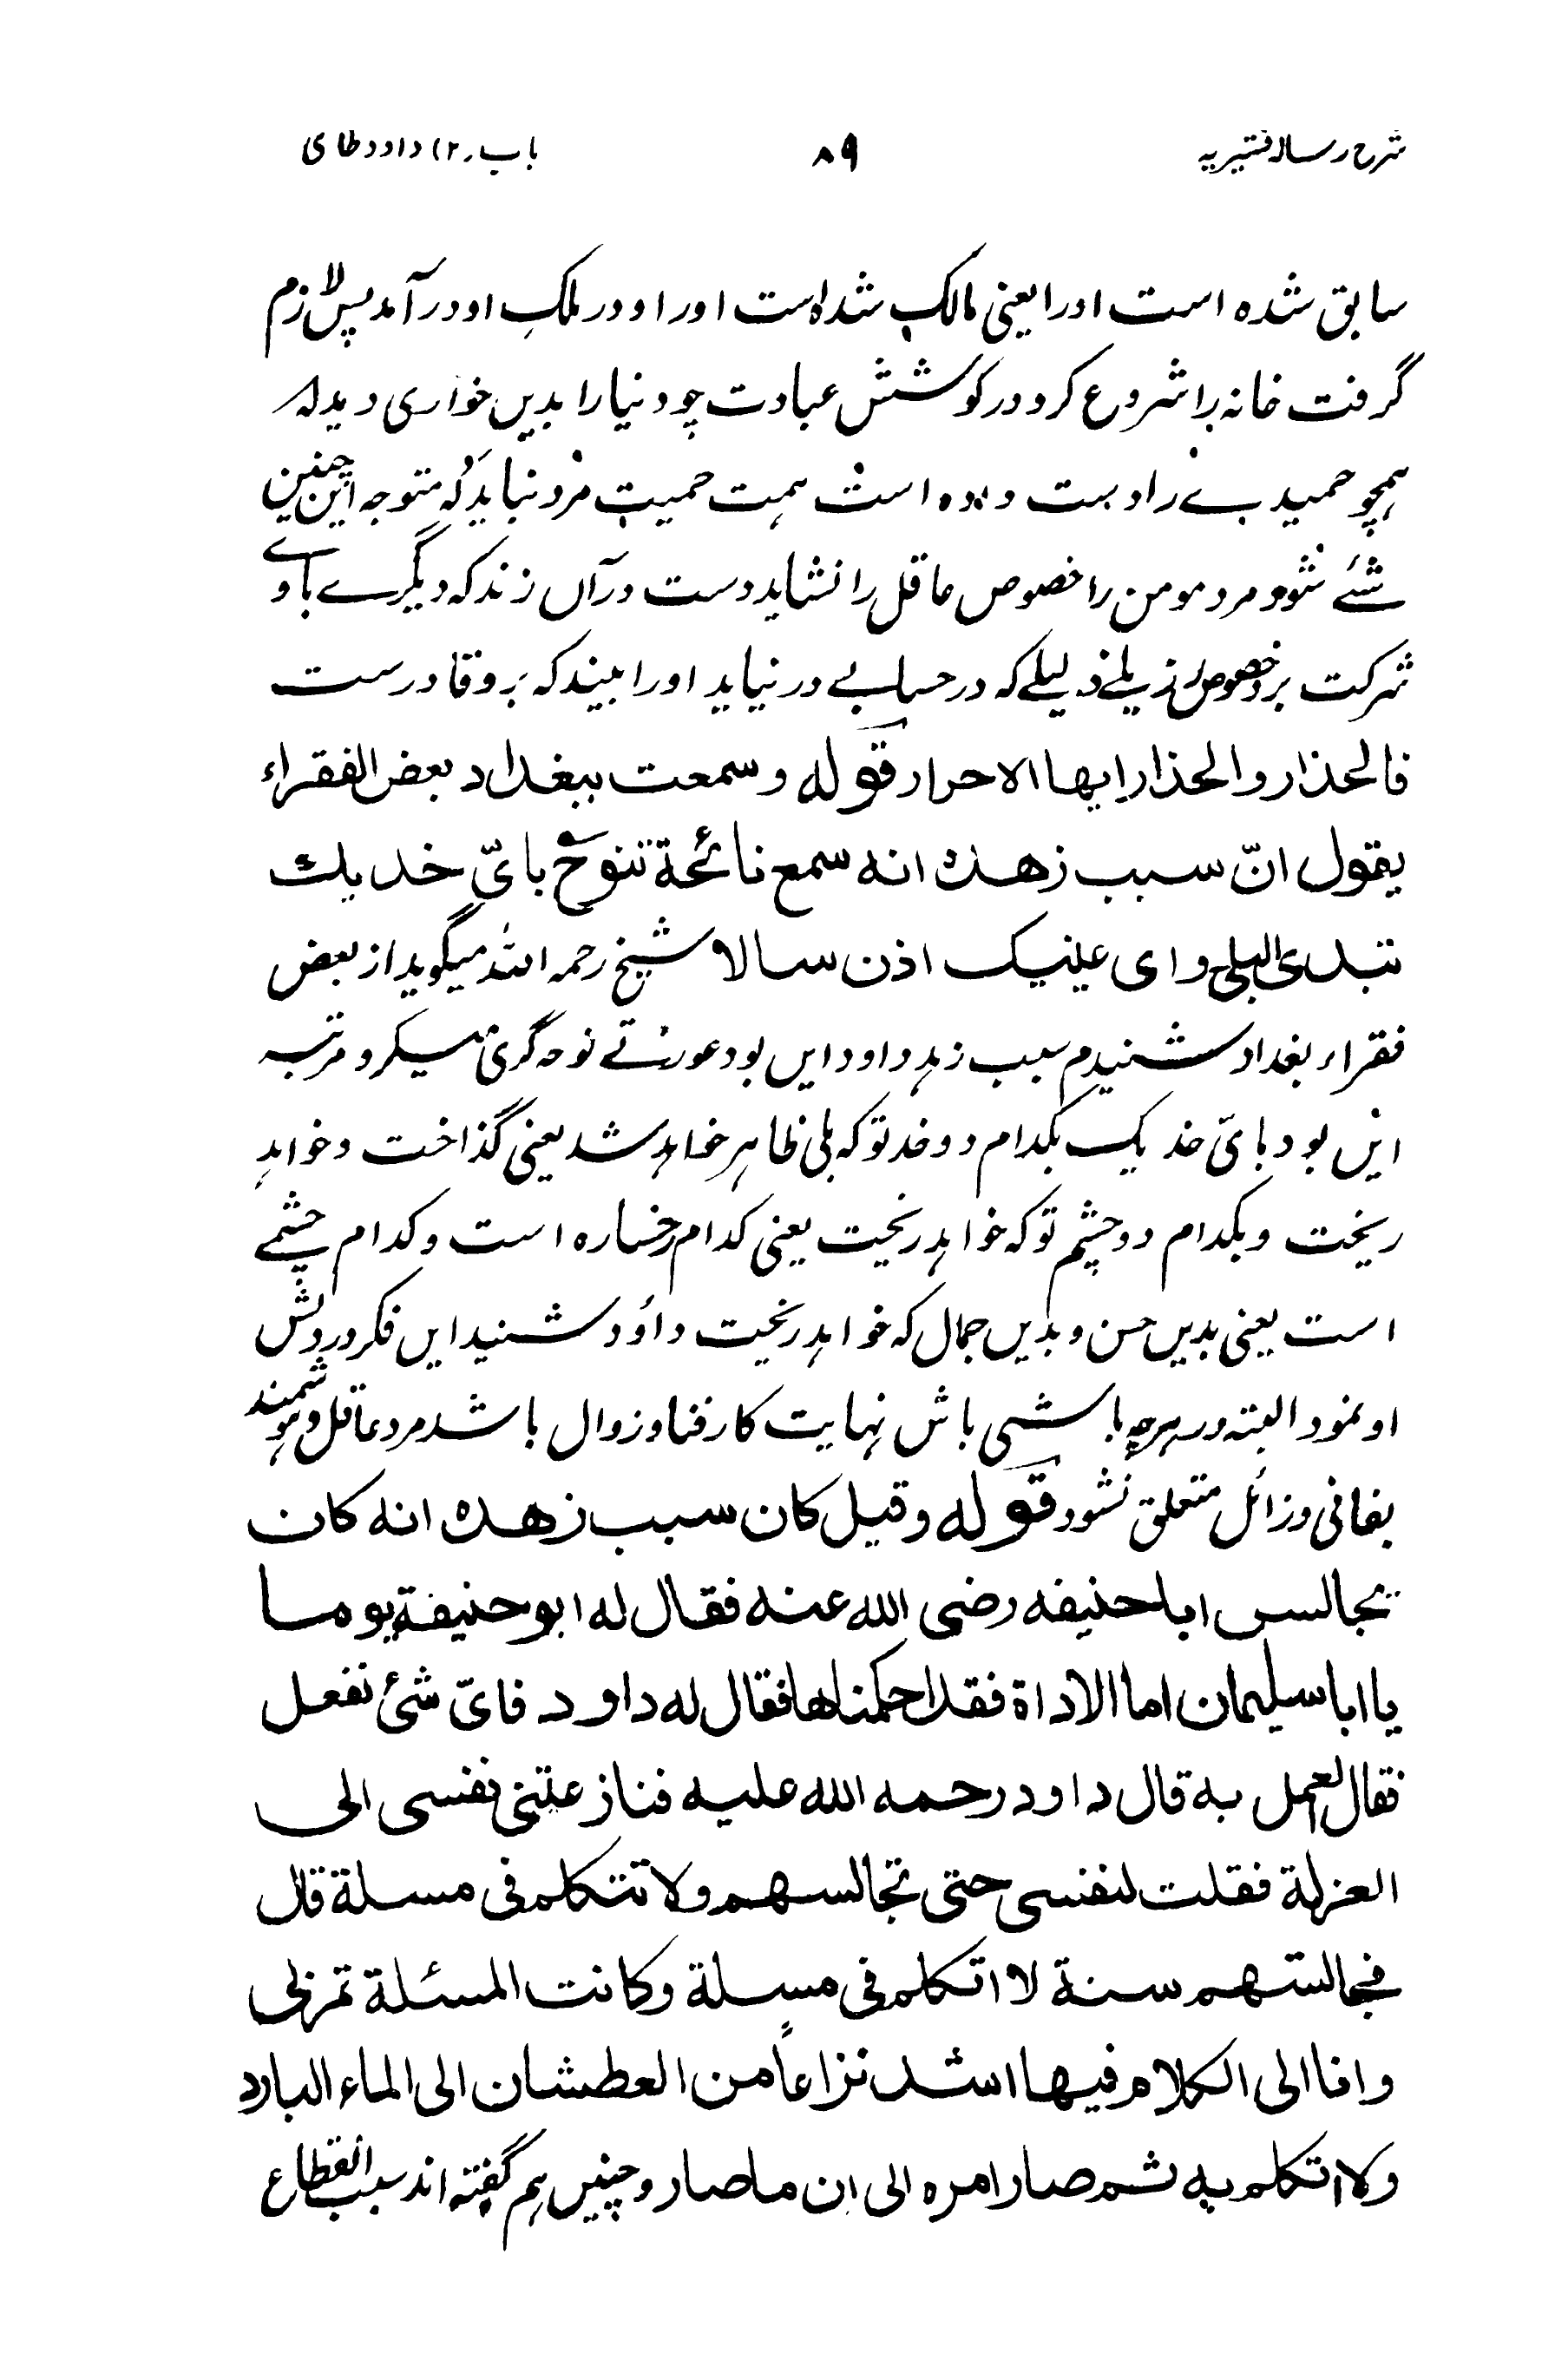 شرح رساله قشیریه
۸۹
باب (۲) داود طائی
سابق شده است اورا یعنی مالک شده است اورا و در ملک او درآمد پس لازم
گرفت خانه را شروع کرد در کوشش عبادت چو دنیا را بدیں خواری دید که
همچو حمید بے را دست داده است همت حمیت مرد نباید که متوجه این چنین
شئے شود و مرد مومن را خصوص عاقل را نشاید دست درآں زند که دیگرے باوے
شرکت برد خصوص رذیلے ذلیلے که در حسابے در نیاید اورا بیند که بروقادرست
فالحذار والحذار ایها الاحرار قوله وسمعت ببغداد بعض الفقراء
یقول انّ سبب زهده انه سمع نائحة تنوح بایّ خدیك
تبدی البلی وای عینیک اذن سالا شیخ رحمه الله میگوید از بعض
فقراء بغداد شنیدم سبب زهد داود ایں بود عورتے نوحه گری میکرد مرتبه
ایں بود بایّ خدیک بکدام دو خد تو که بلی ظاهر خواهد شد یعنی گذاخت و خواهد
ریخت و بکدام دو چشم تو که خواهد ریخت یعنی کدام رخساره است و کدام چشمے
است یعنی بدیں حسن و بدیں جمال که خواهد ریخت داؤد شنید ایں فکر در دلش
او نمود البته در هرچه باشی باش نهایت کار فنا و زوال باشد مرد عاقل و هوشمند
بفانی و زائل متعلق نشود قوله وقیل کان سبب زهده انه کان
یجالس اباحنیفه رضی الله عنه فقال له ابوحنیفة یوما
یا ابا سلیمان اما الاداة فقد احکمناها فقال له داود فایّ شئ نفعل
فقال العمل به قال داود رحمه الله علیه فنازعتنی نفسی الی
العزلة فقلت لنفسی حتی تجالسهم ولا تتکلم فی مسلة قال
فجالستهم سنة لا اتکلم فی مسلة وکانت المسئلة تمر بی
وانا الی الکلام فیها اشد نزاعاً من العطشان الی الماء البارد
ولا اتکلم به ثم صار امره الی ان ما صار و چنیں هم گفته اند سبب انقطاع